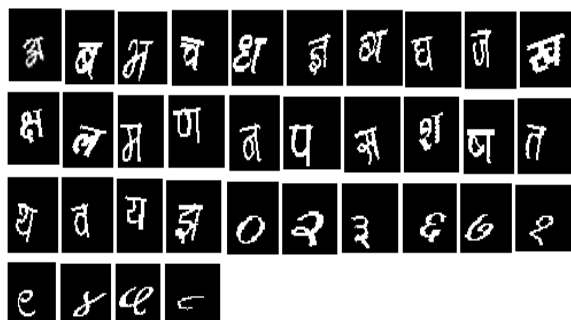 अ ब भ च ध ज्ञ ग घ ज ख
क्ष ल म ण न प स श ष त
थ व य झ ० २ ३ ६ ७ १
९ ४ ५ ८